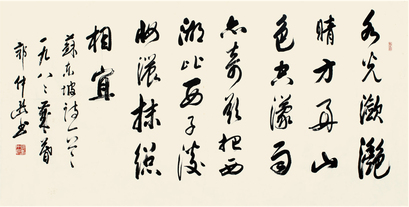 水光潋滟
晴方好山
色空濛雨
亦奇欲把西
湖比西子淡
妆浓抹总
相宜
苏东坡诗一首
一九八二